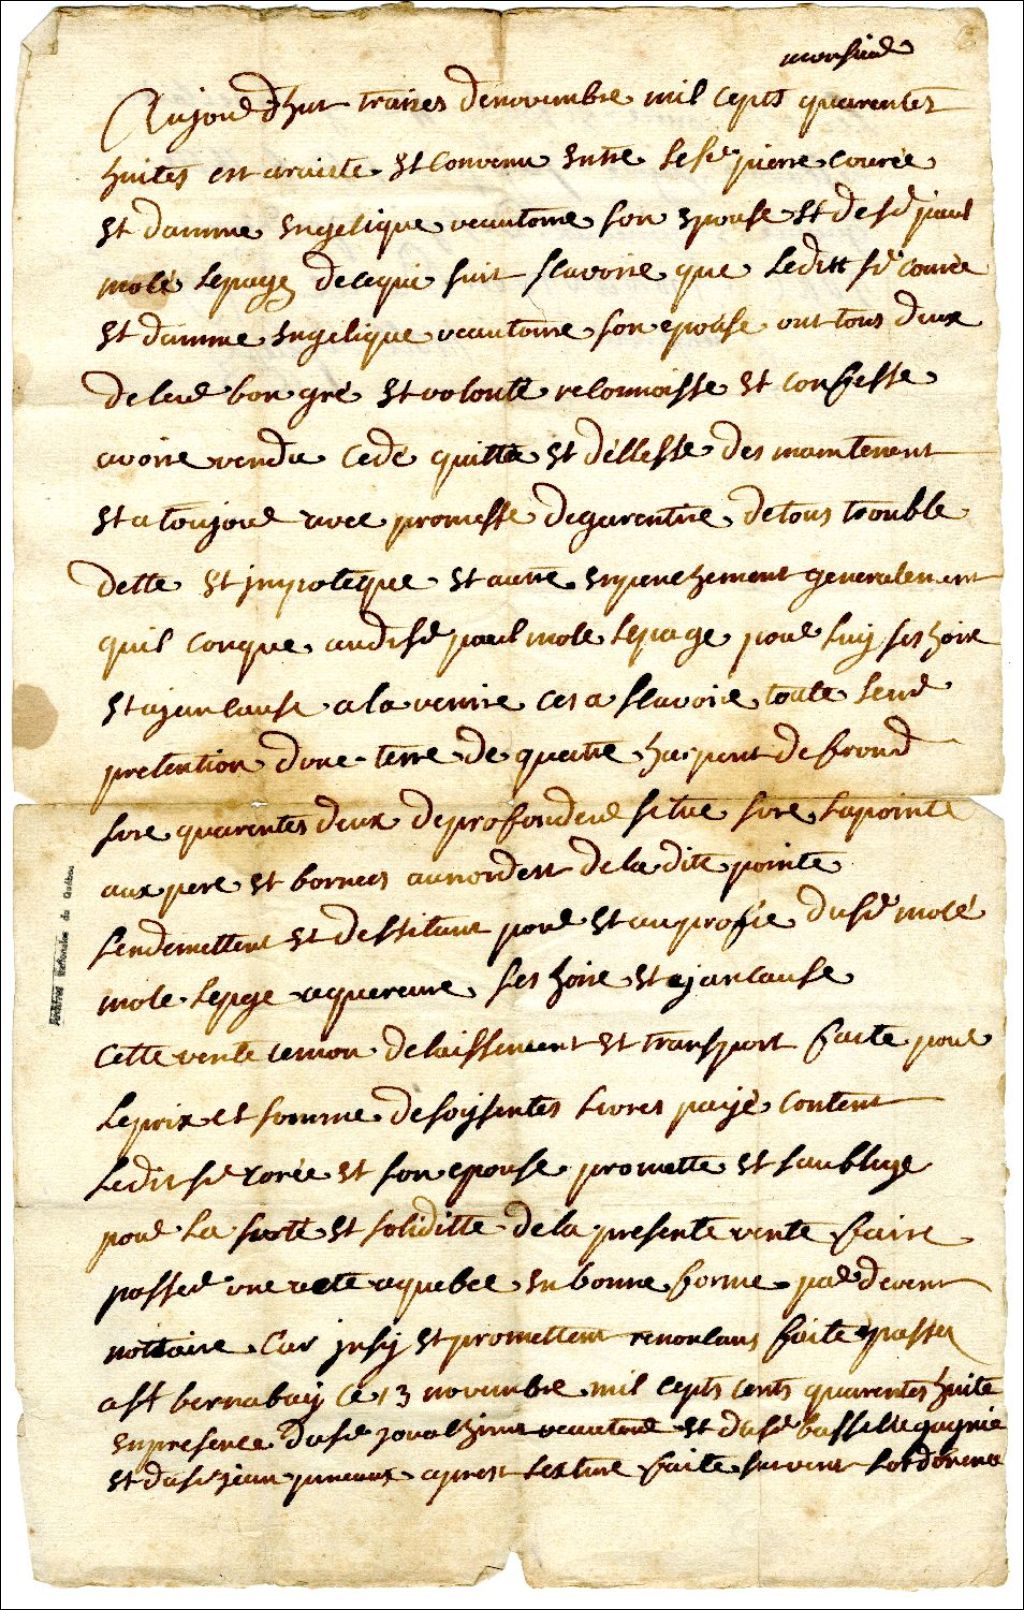 monsieur
Aujourd'hut traizes denovembre mil cepts quarentes
huites est araiete et convenu entre le sr pierre courée
et damme engelique veautome son epouse et de sr paul
molé lepage dece qui suit scavoire que leditt sr courée
et damme engelique veautome son epouse ont tous deux
de leur bon gré et volonté reconnoisse et confesse
avoire vendu cedé quitté et déllesse des maintenent
et a toujour avec promesse degarentire detous trouble
dette et jmpoteque et autre enpenchement generalement
quil conque audi sr paul mole lepage pour luy ses hoire
et ajancause a la venire ces a scavoire toute leur
pretention dune terre de quatre harpent de frond
sure quarentes deux deprofondeur situe sure lapointe
aux pere et bornees aunordest de la dite pointe
sendemettent et dessitant pour et auprofie du sr molé
mole lepge aquereure ses hoire et ajancause
cette vente cemon delaissement et transport faite pour
leprix et somme desoissentes livres payé content
ledit sr corée et son epouse promette et saublige
pour la sureté et soliditte dela presente vente faire
passer une acte aquebec enbonne forme par devent
nottaire car jnsy et promettent renonsans faite passer
a st bernabay ce 13 novembre mil cepts cents quarentes huite
enpresence du sr veautour et du sr bassille gagnié
et du sr jean pineaux aprest lecture faite suivent lordonnance
Archives nationales du Québec